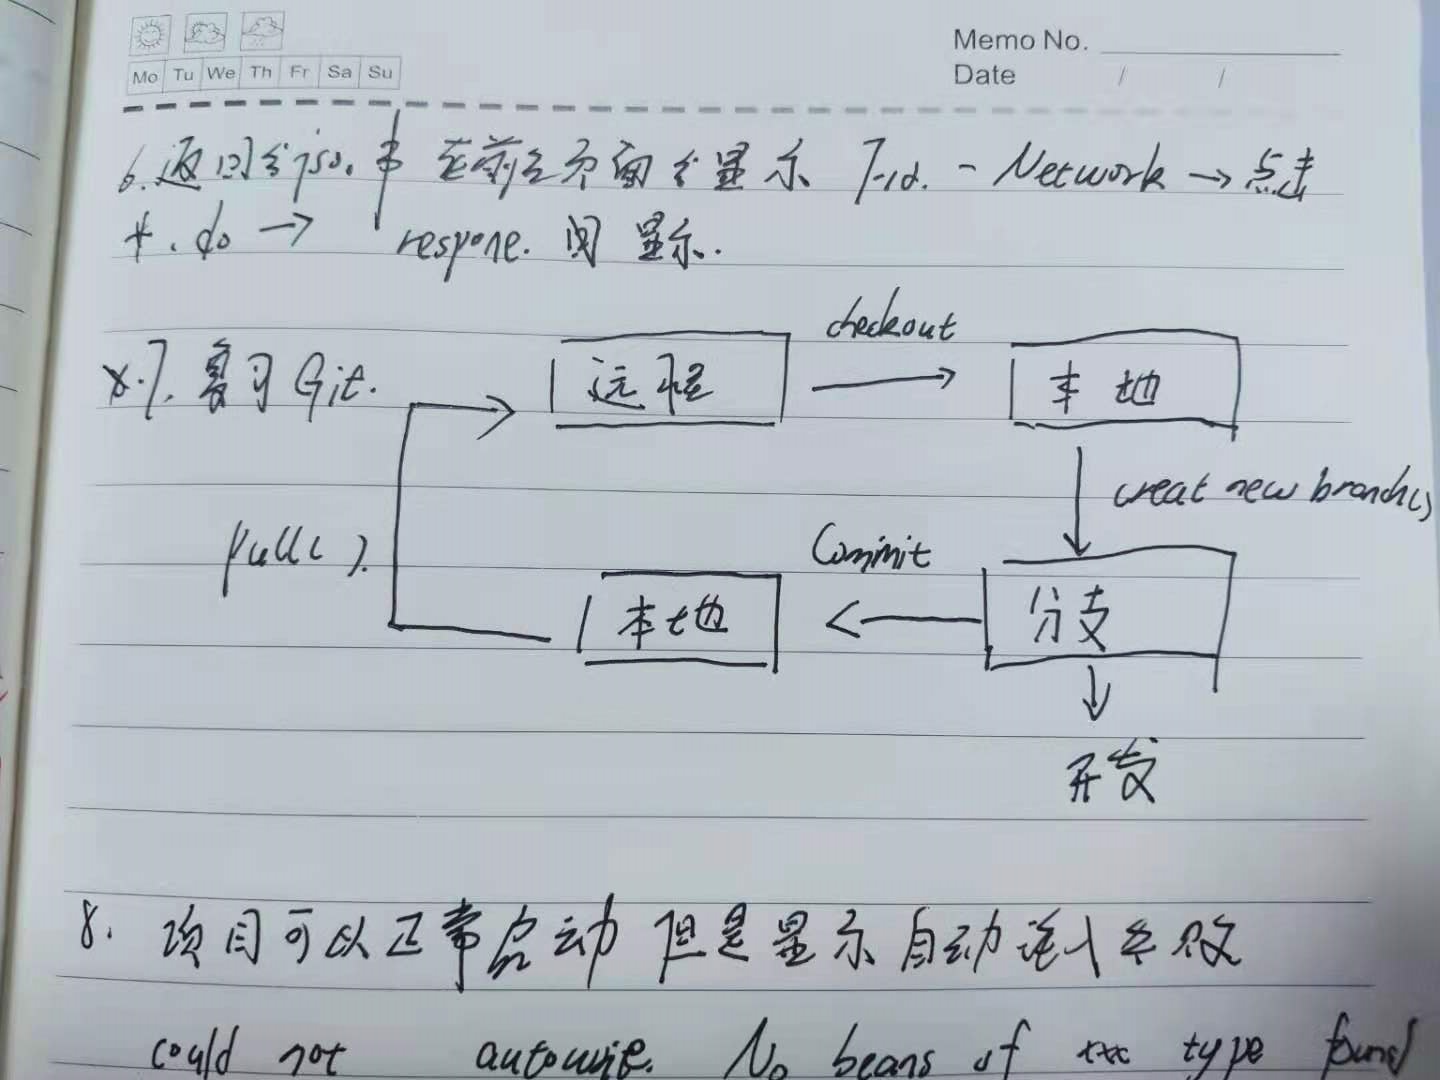 Memo No.
Date / /
Mo Tu We Th Fr Sa Su
6. 返回 json 串 在前台页面 显示 - Network → 点击
*.do → respone. 间 显示.
*7. 复习 Git.
远程
checkout
本地
creat new branch()
pull( ).
本地
Commit
分支
开发
8. 项目可以正常启动 但是显示自动注入失败
could not autowire. No beans of xxx type found